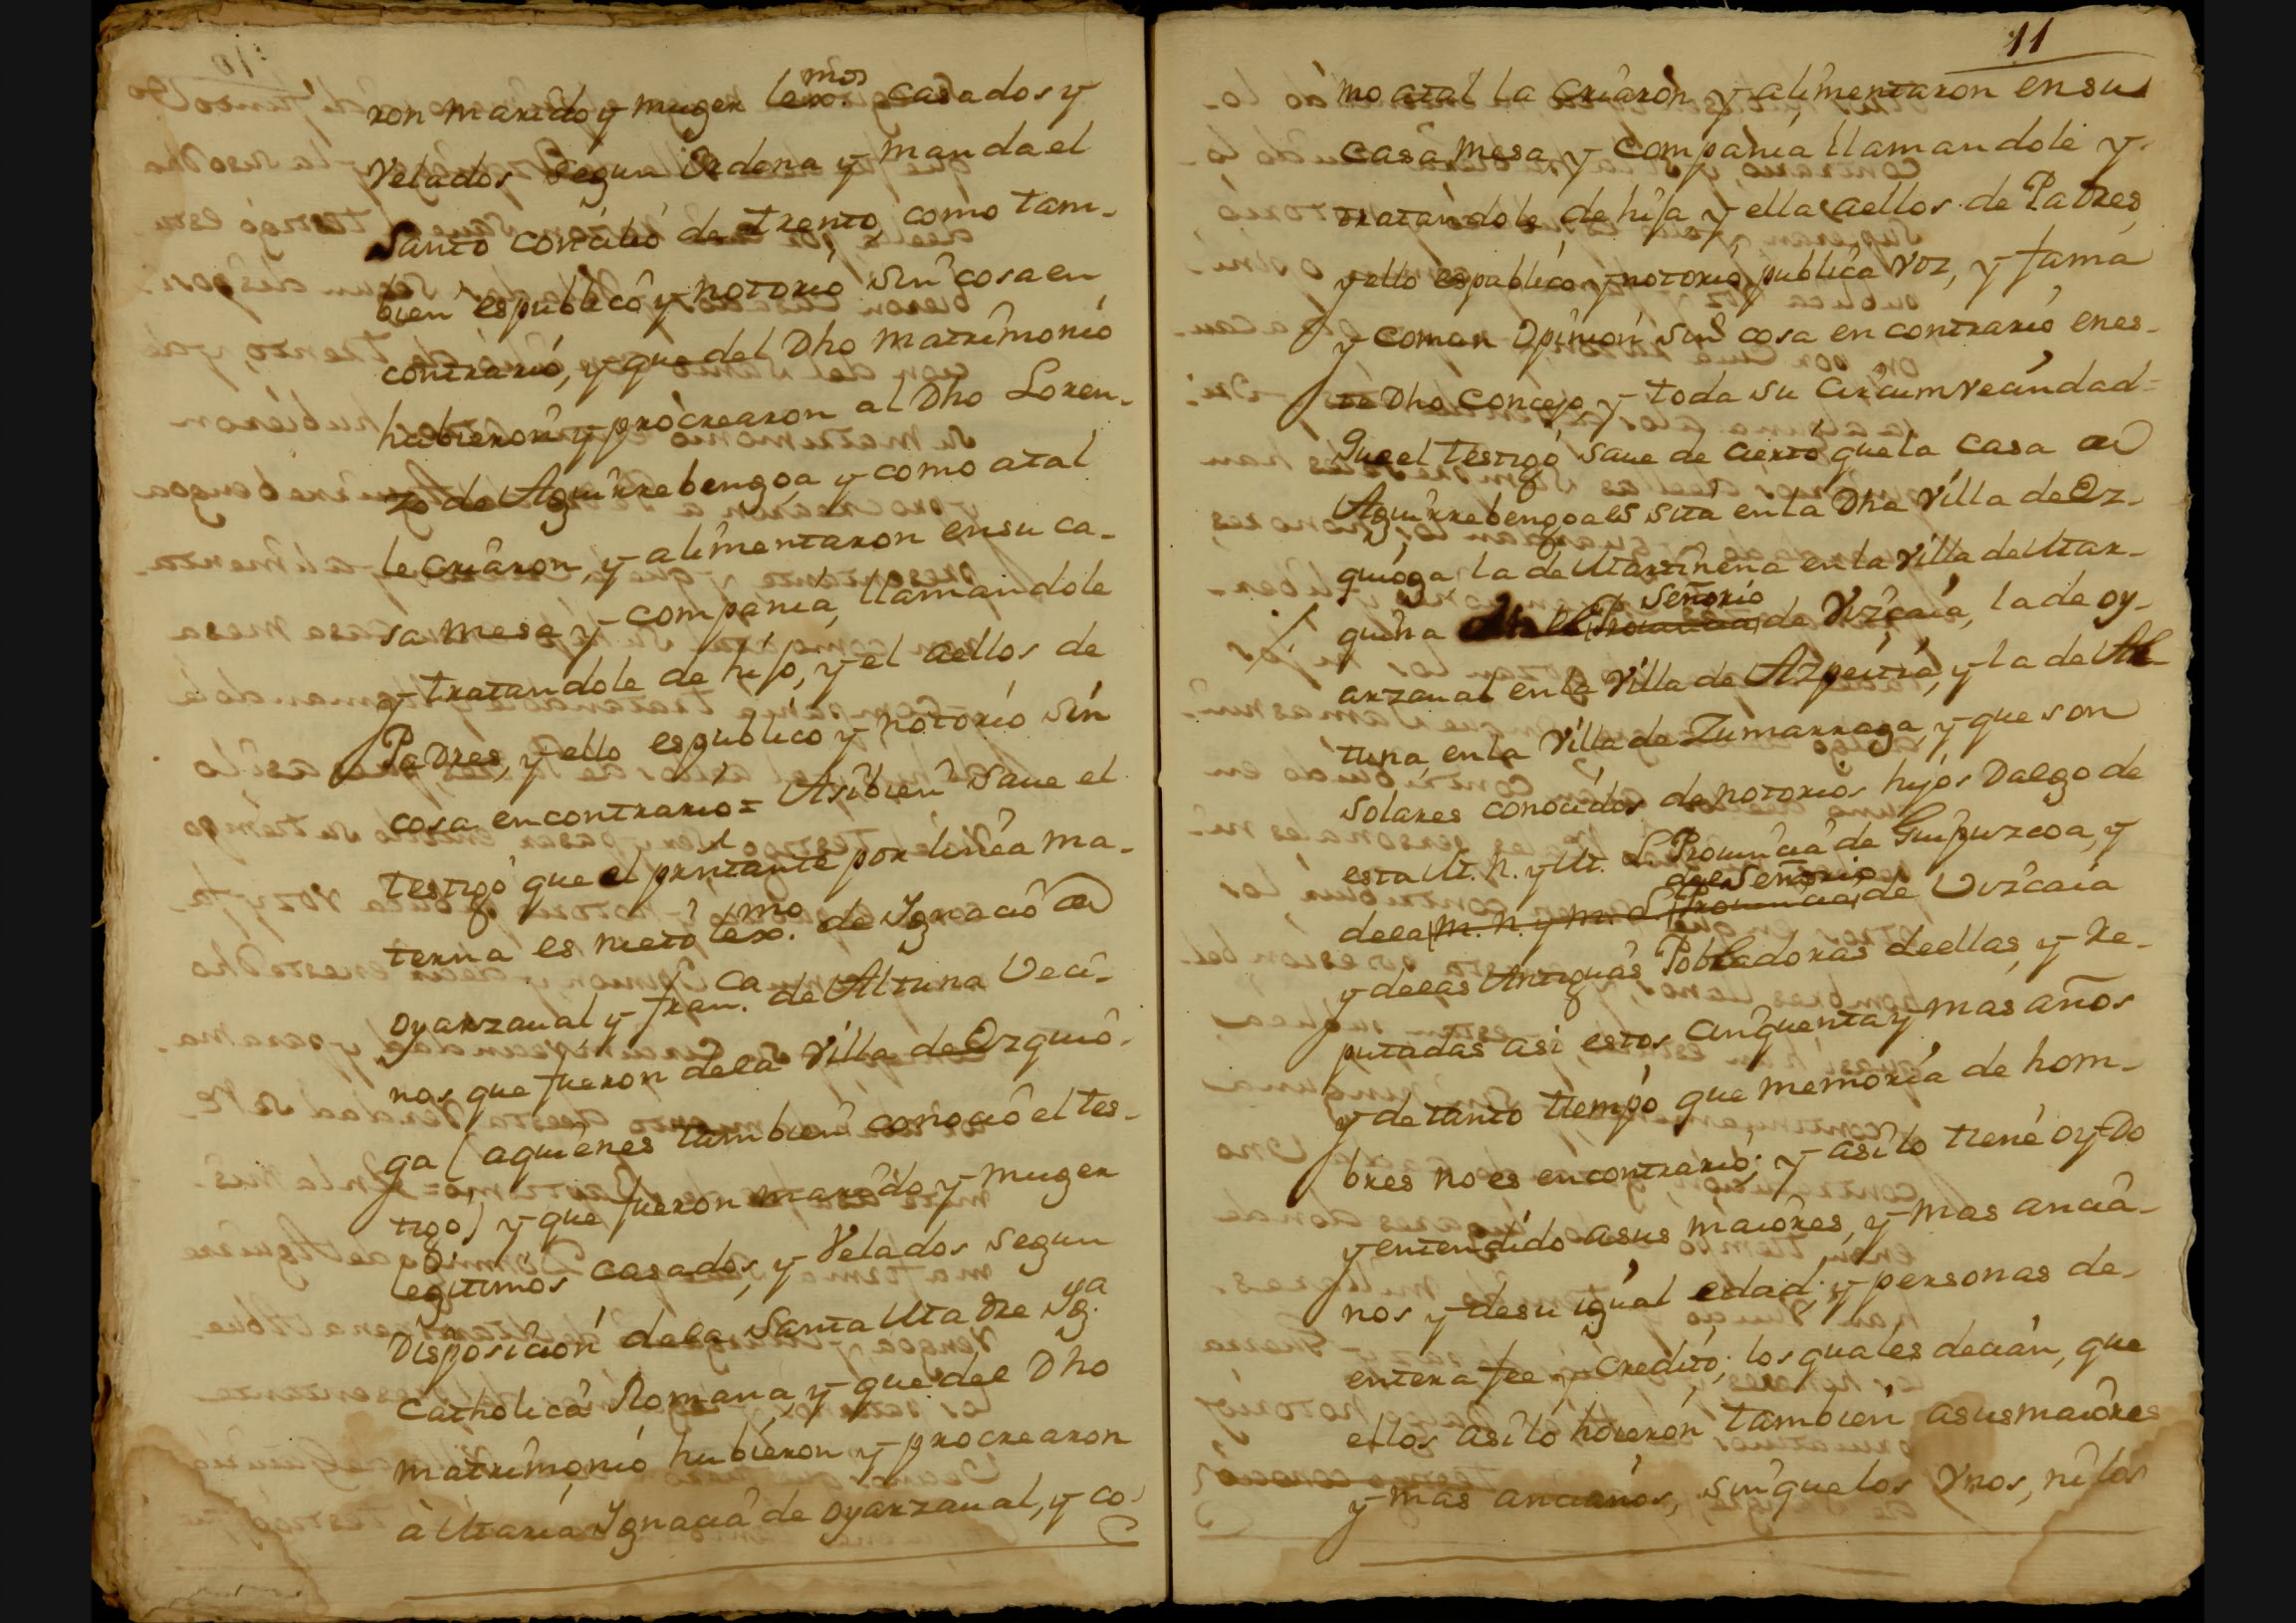 ron marido y muger lex.mos casados y
Velados segun Ordena y manda el
Santo concilio de trento, como tam-
bien es publico y notorio sin cosa en
contrario, y que del Dho matrimonio
hubieron y procrearon al Dho Loren-
zo de Aguirrebengoa y como atal
le criaron, y alimentaron ensu ca-
sa mesa y compania, llamandole
y tratandole de hijo, y el aellos de
Padres, y ello espublico y notorio sin
cosa encontrario= Asibien save el
testigo que el prntante por linea ma-
terna es nieto lex.mo de Ygnacio de
oyarzaual y fran.ca de Altuna Veci-
nos que fueron dela Villa de Ozquio-
ga (aquienes tambien conocio el tes-
tigo) y que fueron marido y muger
legitimos casados, y Velados segun
Disposicion dela Santa Madre Yg.ya
Catholica Romana, y que del Dho
matrimonio hubieron y procrearon
à Maria Ygnacia de oyarzaual, y co-
11
mo atal la criaron y alimentaron ensu
casa mesa y compania llamandole y
tratandole de hija y ella aellos de Padres
y ello espublico y notorio publica voz, y fama
y comun Opinion sin cosa en contrario enes-
te Dho Concejo, y toda su circumvecindad=
Que el testigo save de cierto que la casa de
Aguirrebengoa es sita en la Dha Villa de Oz-
quioga, la de Martinena en la Villa de Mar-
Señorio
quina Provincia de Vizcaia, la de oy-
arzaual en la Villa de Azpeitia, y la de Al-
tuna, en la Villa de Zumarraga, y que son
solares conocidos de notorios hijos Dalgo de
esta M. N. y M. L Provincia de Guipuzcoa, y
del Señorio
dela M. N. y M. L Provincia de Vizcaia
y delas Antiguas Pobladoras deellas, y Re-
putadas asi estos cinquenta y mas años
y de tanto tiempo que memoria de hom-
bres no es encontrario; y asi lo tiene oydo
y entendido asus maiores, y mas ancia-
nos y desu igual edad; y personas de
entera fee y credito; los quales decian, que
ellos asi lo hoieron tambien asus maiores
y mas ancianos, sin que los Vnos, ni los